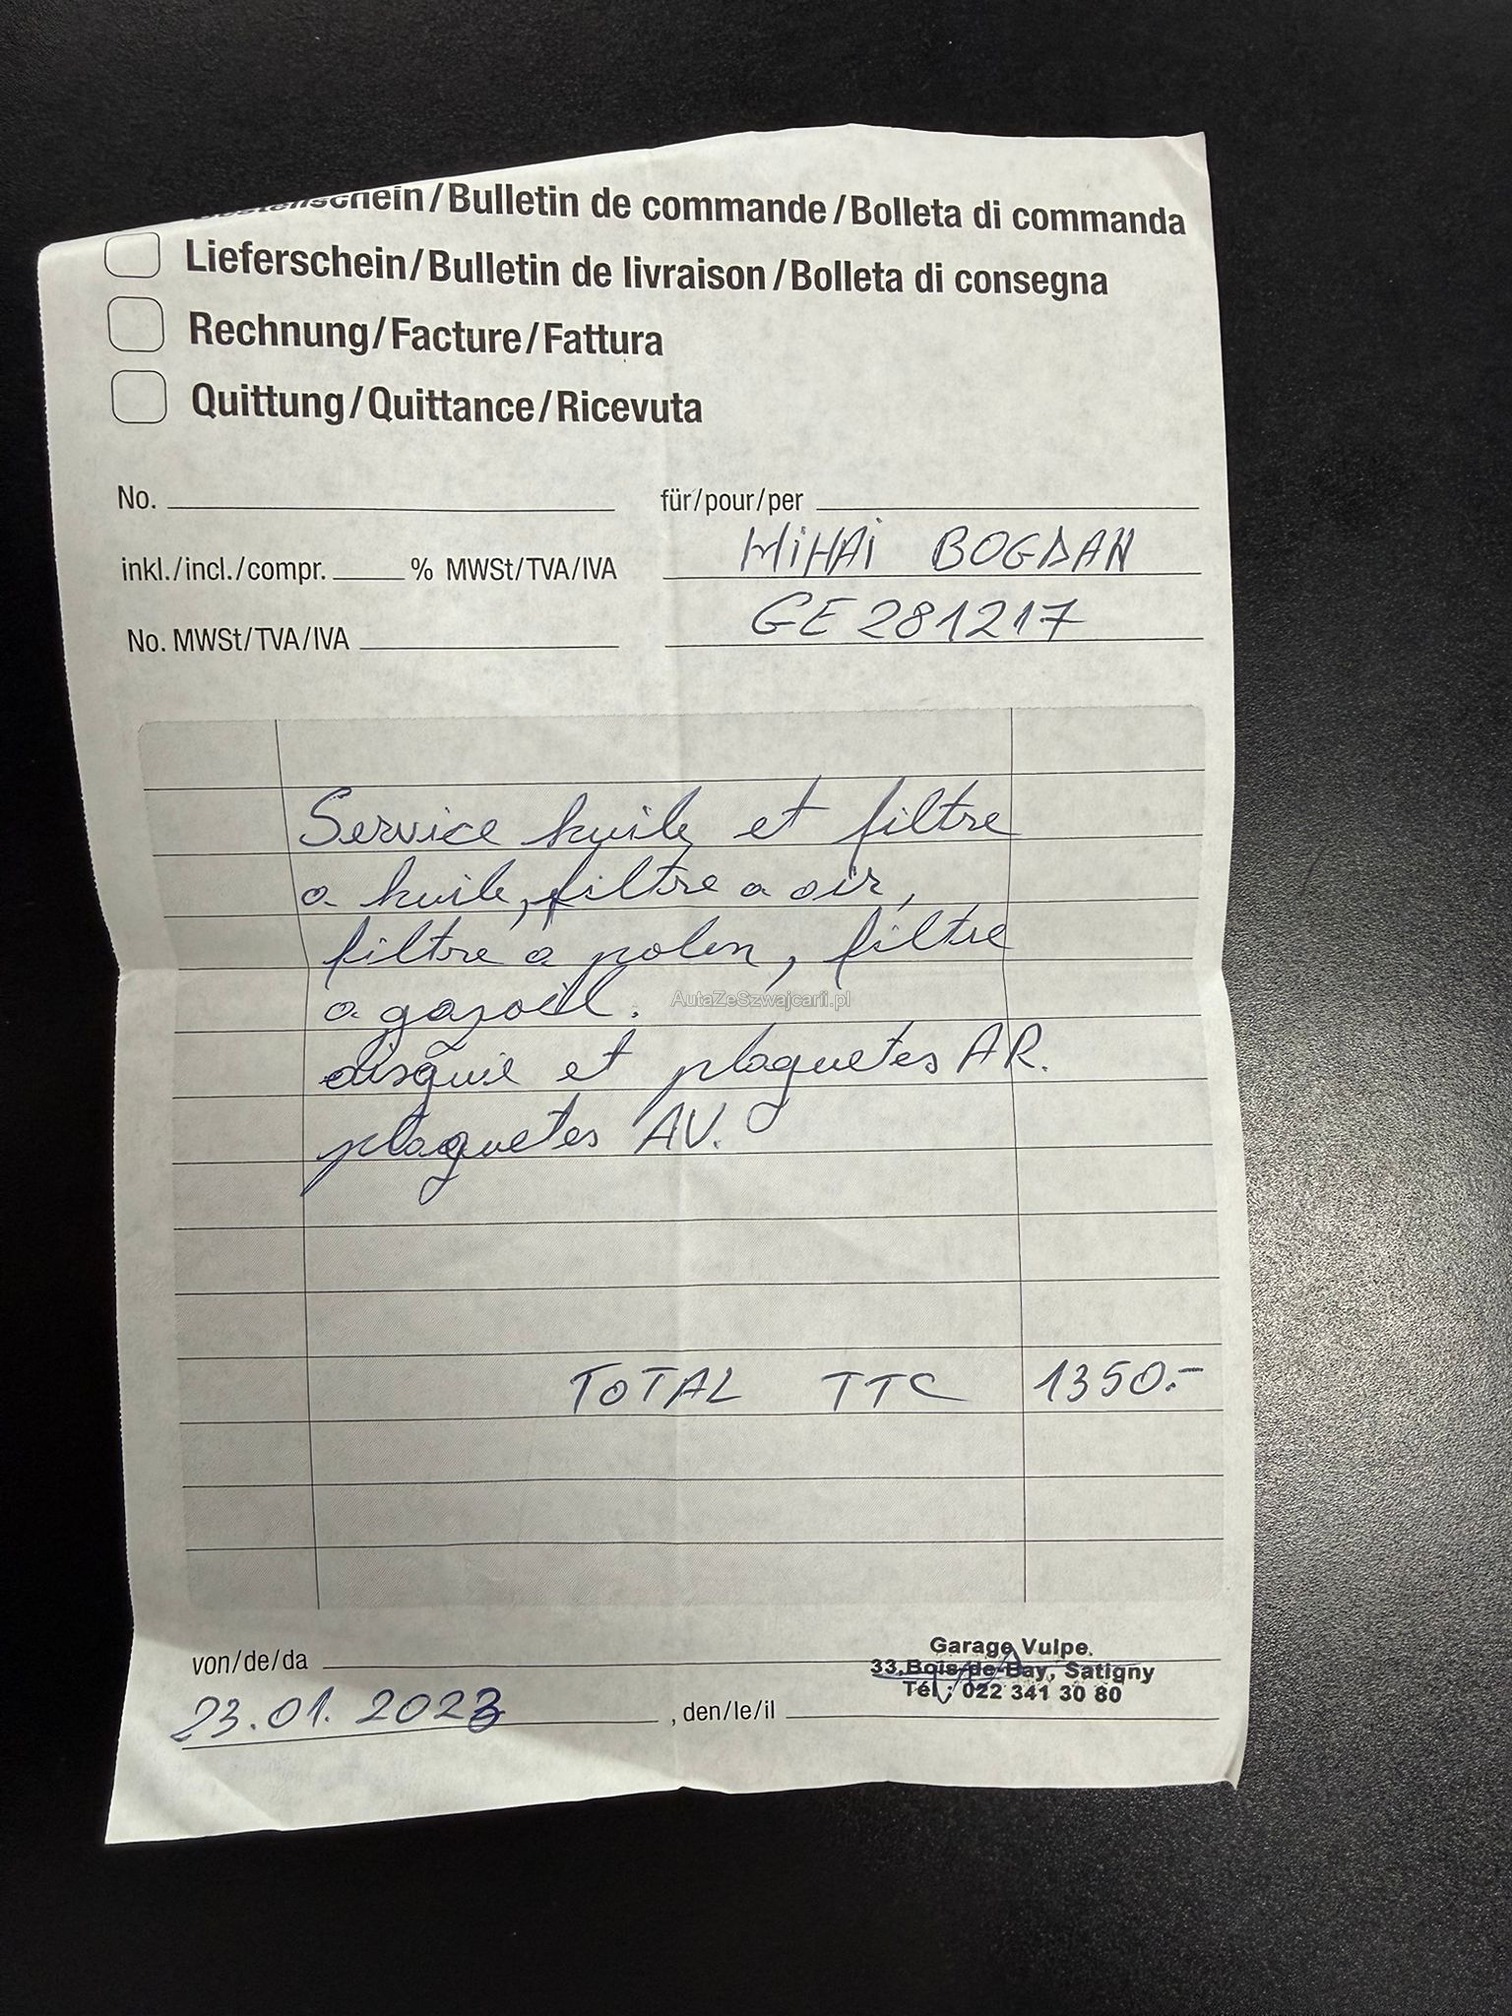 Bestellschein/Bulletin de commande/Bolleta di commanda
Lieferschein/Bulletin de livraison/Bolleta di consegna
Rechnung/Facture/Fattura
Quittung/Quittance/Ricevuta
No. für/pour/per
MiHAi BOGDAN
inkl./incl./compr. % MWSt/TVA/IVA
GE 281217
No. MWSt/TVA/IVA
Service huile et filtre
a huile, filtre a air,
filtre a polen, filtre
a gazoil.
AutaZeSzwajcarii.pl
disque et plaquetes AR.
plaquetes AV.
ToTAL TTC 1350.-
Garage Vulpe.
von/de/da
33,Bois-de-Bay, Satigny
Tél : 022 341 30 80
23.01.2023 , den/le/il